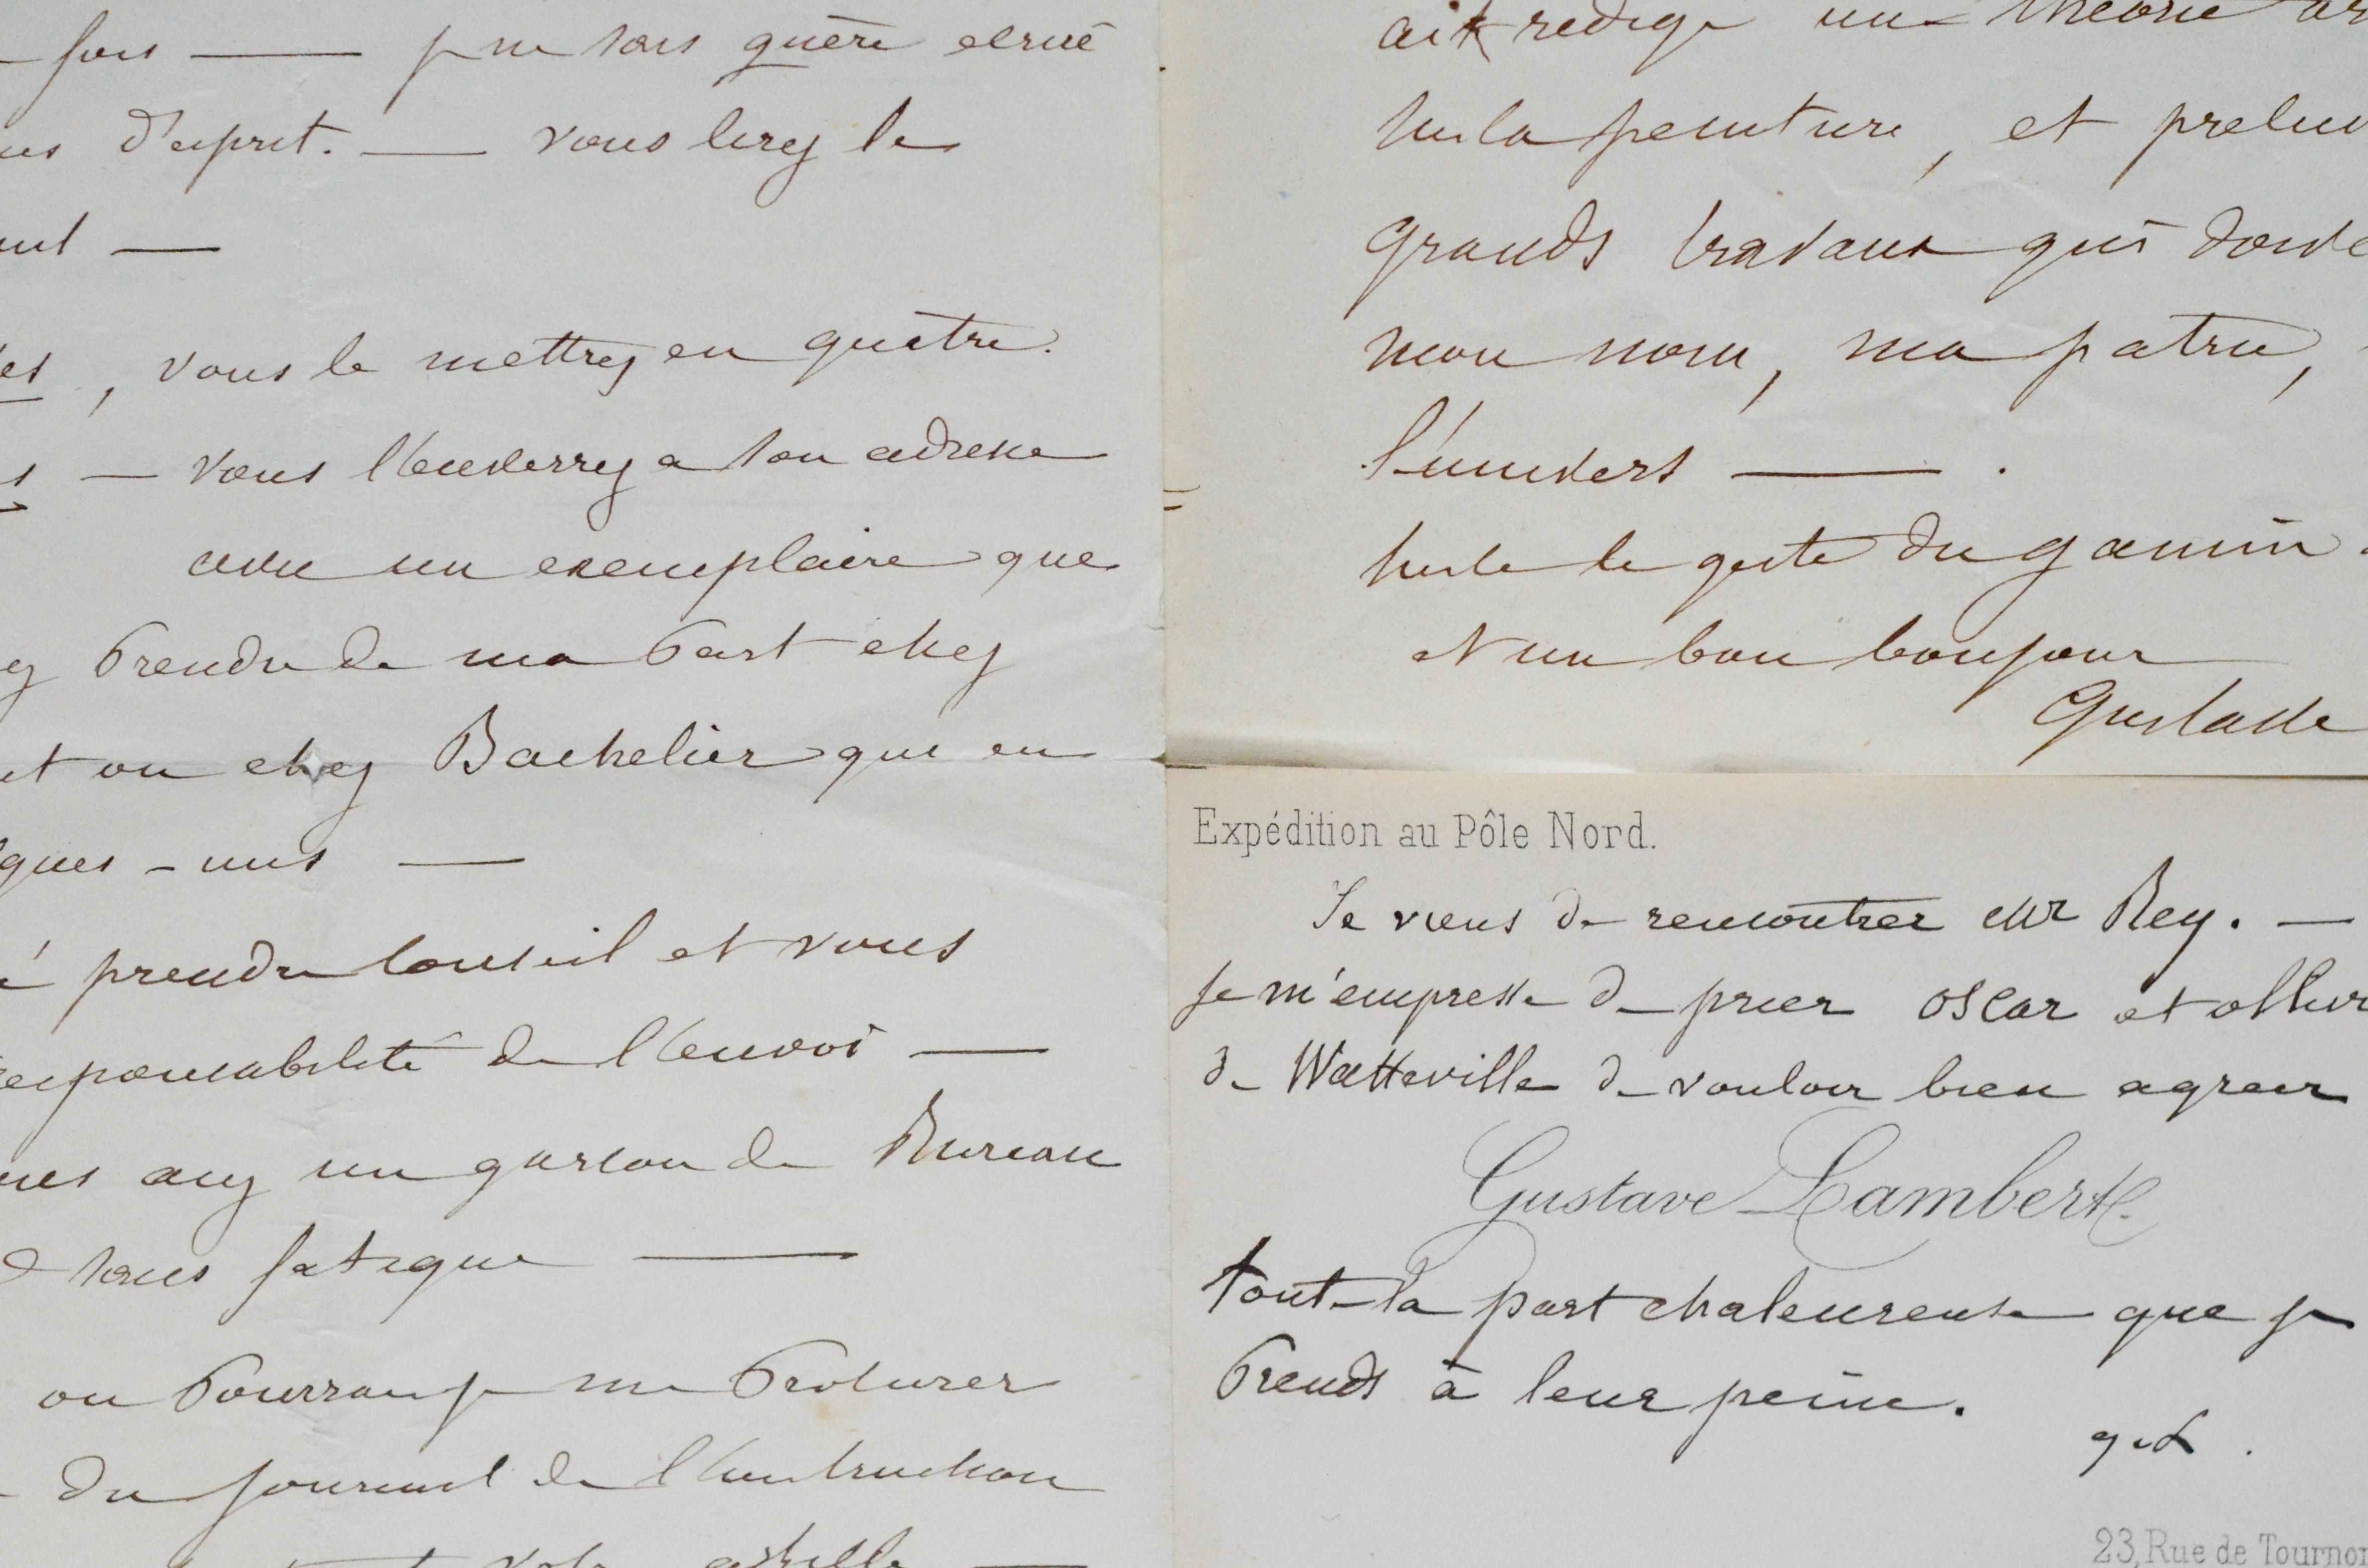 fois — je ne sais guère
d'esprit. — vous lirez le
—
, vous le mettrez en quatre.
— vous l'enverrez a son adresse
avec un exemplaire que
prendre de ma part chez
et ou chez Bachelier qui en
ques-uns —
à prendre conseil et vous
responsabilité de l'envoi —
avez un garçon de Bureau
sans fatigue —
ou pourrais-je me procurer
du journal de l'instruction
ait rédigé une théorie
sur la peinture, et
grands travaux qui
mon nom, ma patrie,
l'univers — .
le geste du gamin
et un bon bonjour
Gustave
Expédition au Pôle Nord.
Je viens de rencontrer Mr Rey. —
je m'empresse de prier Oscar et
de Watteville de vouloir bien agréer
Gustave Lambert.
toute la part chaleureuse que je
prends à leur peine.
g. L.
23, Rue de Tournon